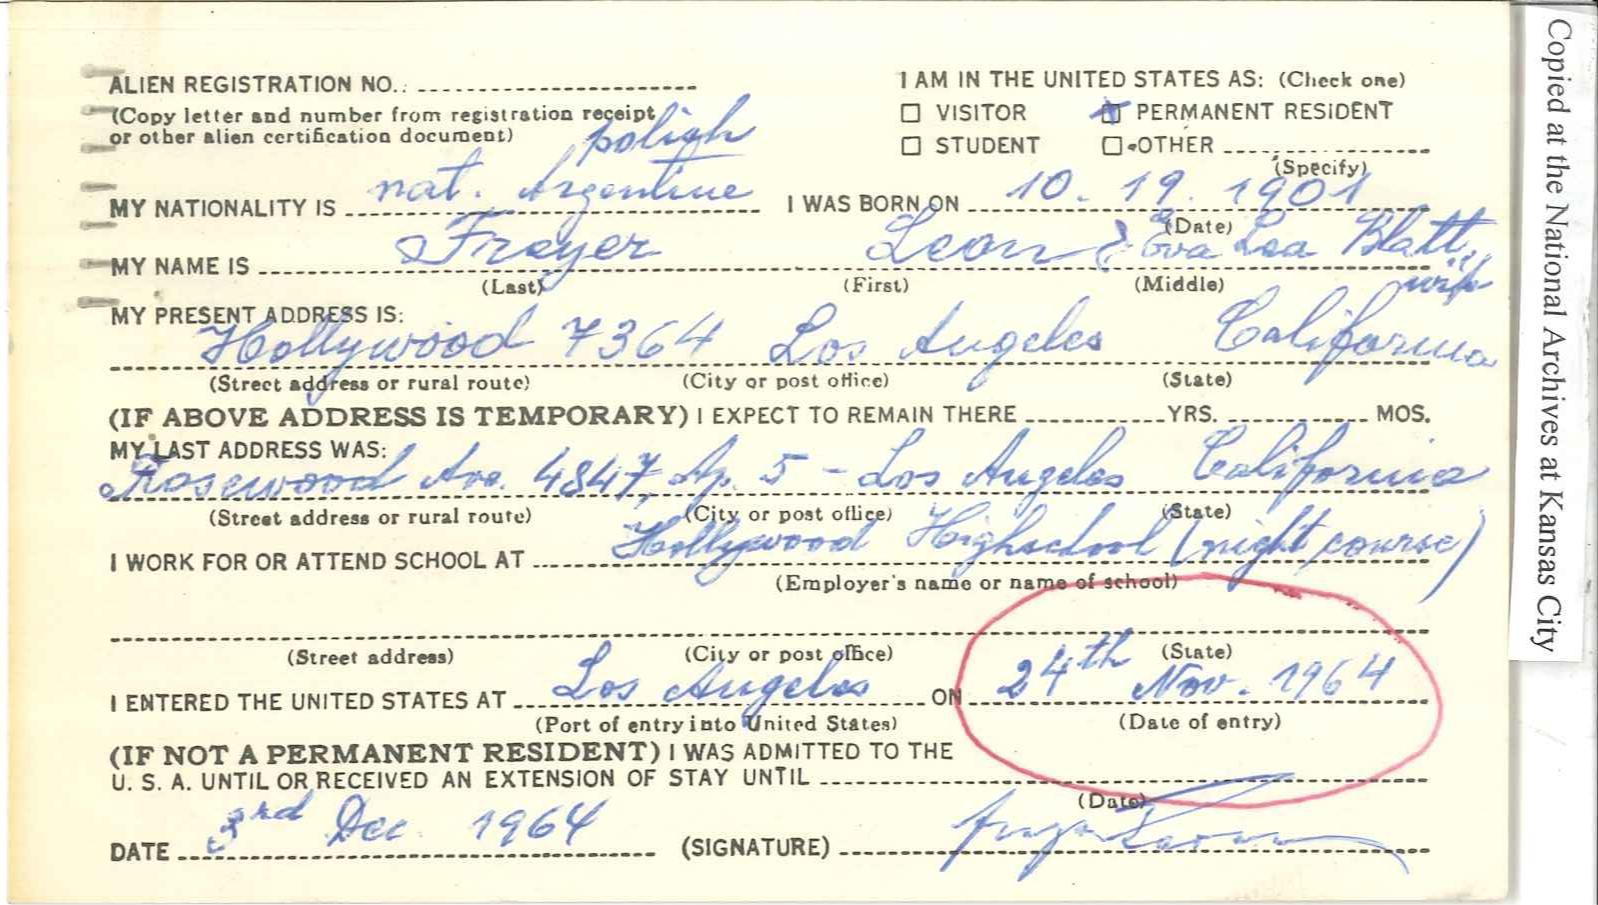 ALIEN REGISTRATION NO.:
(Copy letter and number from registration receipt
or other alien certification document)
I AM IN THE UNITED STATES AS: (Check one)
VISITOR PERMANENT RESIDENT
STUDENT OTHER
(Specify)
polish
MY NATIONALITY IS nat. Argentine I WAS BORN ON 10. 19. 1901
(Date)
MY NAME IS Frayer Leon & Eva Lea Blatt,
wife
(Last) (First) (Middle)
MY PRESENT ADDRESS IS:
Hollywood 7364 Los Angeles California
(Street address or rural route) (City or post office) (State)
(IF ABOVE ADDRESS IS TEMPORARY) I EXPECT TO REMAIN THERE YRS. MOS.
MY LAST ADDRESS WAS:
Rosewood Ave. 4847, Ap. 5 - Los Angeles California
(Street address or rural route) (City or post office) (State)
I WORK FOR OR ATTEND SCHOOL AT Hollywood Highschool (night course)
(Employer's name or name of school)
(Street address) (City or post office) (State)
I ENTERED THE UNITED STATES AT Los Angeles ON 24th Nov. 1964
(Port of entry into United States) (Date of entry)
(IF NOT A PERMANENT RESIDENT) I WAS ADMITTED TO THE
U. S. A. UNTIL OR RECEIVED AN EXTENSION OF STAY UNTIL
(Date)
DATE 3rd Dec. 1964 (SIGNATURE)
Copied at the National Archives at Kansas City